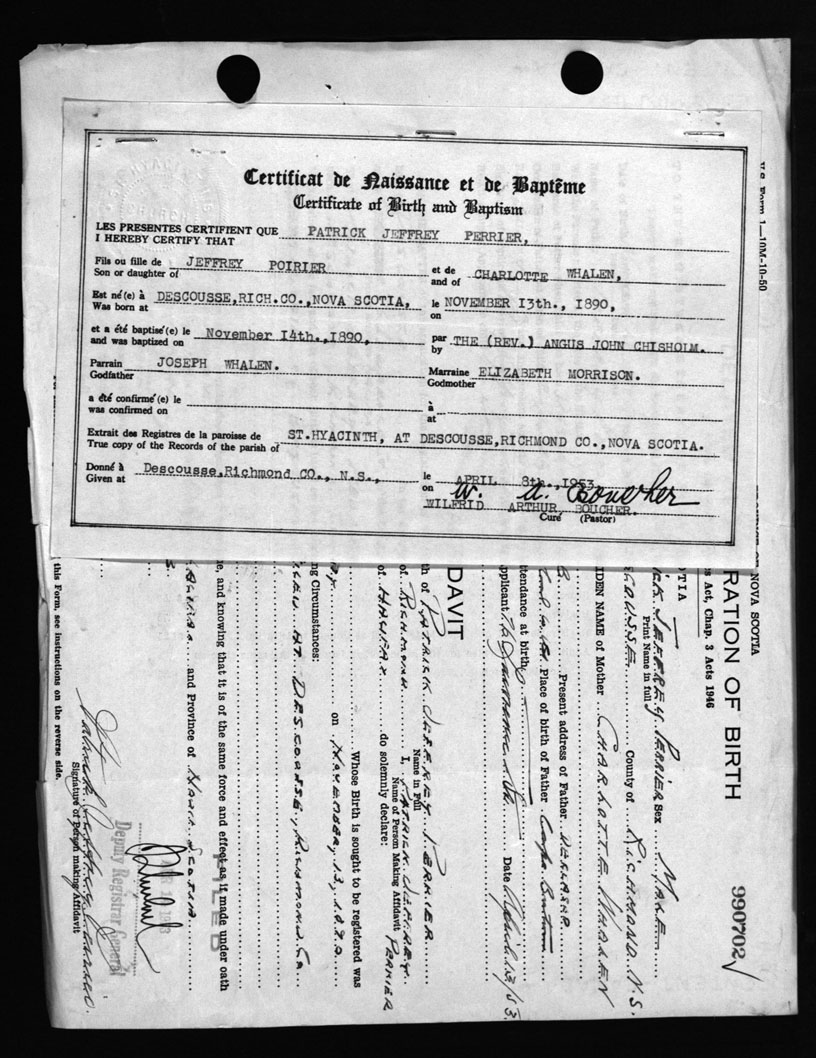 Certificat de Naissance et de Baptême
Certificate of Birth and Baptism
LES PRESENTES CERTIFIENT QUE
I HEREBY CERTIFY THAT
PATRICK JEFFREY PERRIER,
Fils ou fille de
Son or daughter of
JEFFREY POIRIER
et de
and of
CHARLOTTE WHALEN,
Est né(e) à
Was born at
DESCOUSSE, RICH.CO., NOVA SCOTIA,
le
on
NOVEMBER 13th., 1890,
et a été baptisé(e) le
and was baptized on
November 14th., 1890,
par
by
THE (REV.) ANGUS JOHN CHISHOLM.
Parrain
Godfather
JOSEPH WHALEN.
Marraine
Godmother
ELIZABETH MORRISON.
a été confirmé(e) le
was confirmed on
à
at
Extrait des Registres de la paroisse de
True copy of the Records of the parish of
ST.HYACINTH, AT DESCOUSSE, RICHMOND CO., NOVA SCOTIA.
Donné à
Given at
Descousse, Richmond CO., N.S.,
le
on
APRIL 8th., 1953
W. A. Boucher
WILFRID ARTHUR BOUCHER.
Curé (Pastor)
V.S. Form 1—10M-10-50
NOVA SCOTIA
RATION OF BIRTH
990702
Act, Chap. 3 Acts 1946
OTIA
JEFFREY PERRIER Sex MALE
Print Name in full
COUSSE County of RICHMOND N.S.
IDEN NAME of Mother CHARLOTTE WHALEN
Present address of Father DECEASED
Place of birth of Father Cape Breton
ttendance at birth
pplicant
Date April 13/53
DAVIT
th of PATRICK JEFFREY PERRIER
Name in Full
of RICHMOND I, PATRICK JEFFREY PERRIER
Name of Person Making Affidavit
of HALIFAX do solemnly declare:
Whose Birth is sought to be registered was
on NOVEMBER, 13, 1890
ng Circumstances:
AT DESCOUSSE, RICHMOND Co
e, and knowing that it is of the same force and effect as if made under oath
FILED
and Province of NOVA SCOTIA
Deputy Registrar General
Signature of Person making Affidavit
this Form, see instructions on the reverse side.